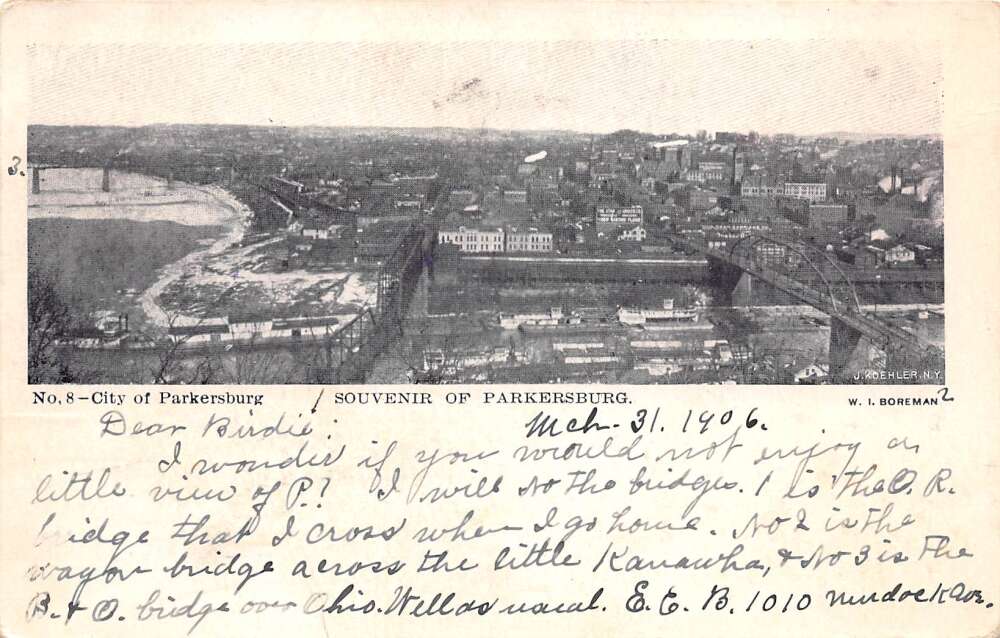 3.
J. KOEHLER, N.Y.
No. 8–City of Parkersburg
1
SOUVENIR OF PARKERSBURG.
W. I. BOREMAN
2
Dear Birdie: Mch. 31. 1906.
I wonder if you would not enjoy a
little view of P.? I will No the bridges. 1 is the O. R.
bridge that I cross when I go home. No 2 is the
wagon bridge across the little Kanawha, & No 3 is the
B. & O. bridge over Ohio. Well as usual. E. E. B. 1010 Murdock Ave.